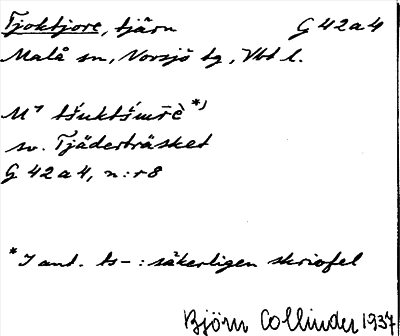 Tjoktjore, tjärn G 42 a 4
Malå sn, Norsjö tg, Vbt l.
sv. Tjäderträsket
G 42 a 4, n:r 8
*I ant. ts- : säkerligen skrivfel
Björn Collinder 1937